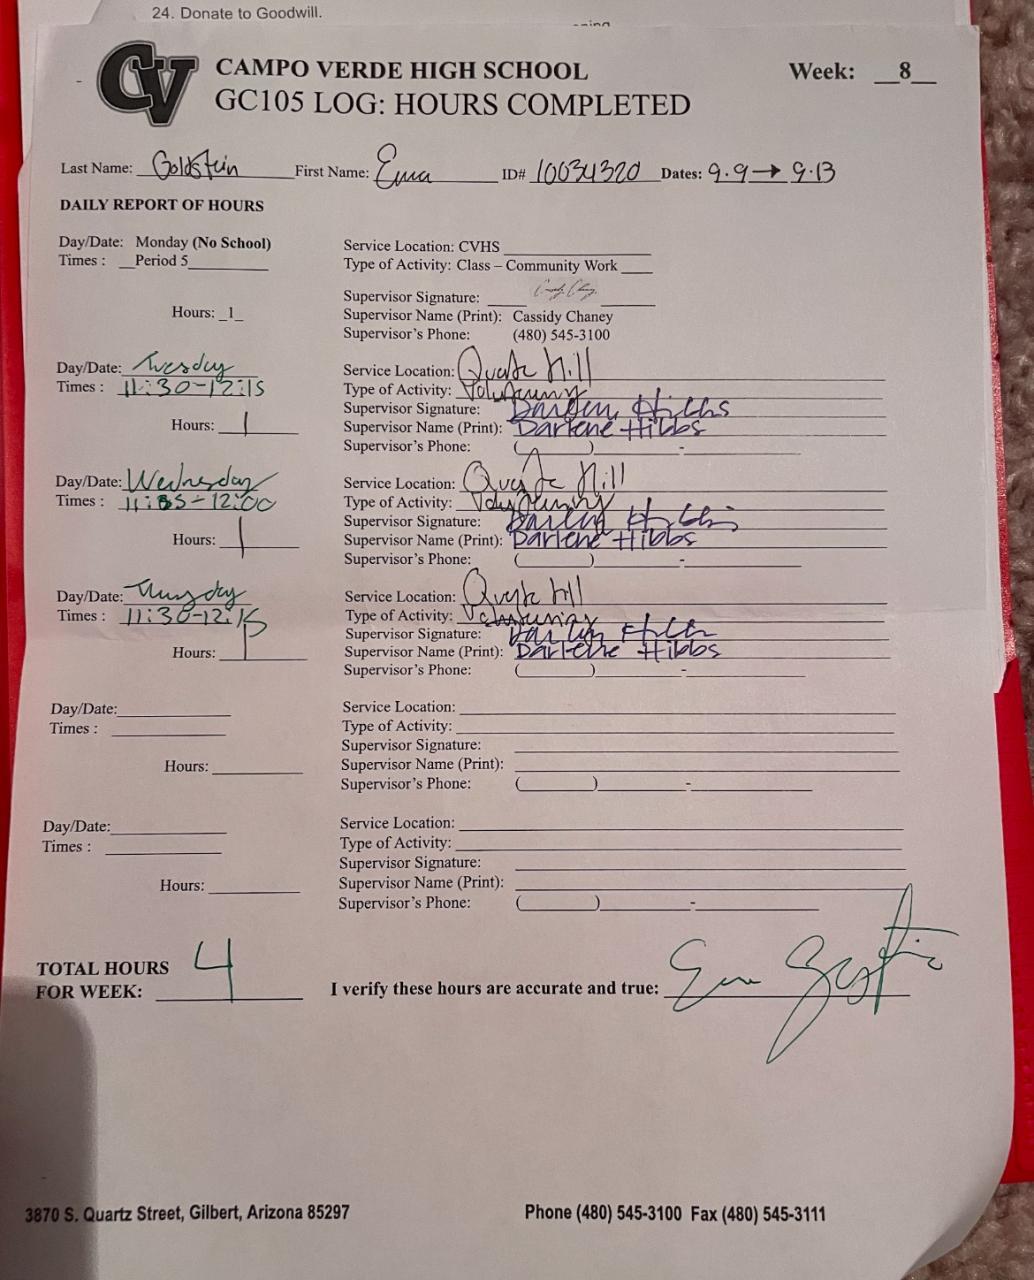 24. Donate to Goodwill.
CV
CAMPO VERDE HIGH SCHOOL
Week: __8__
GC105 LOG: HOURS COMPLETED
Last Name: Goldstein First Name: Ema ID# 10034320 Dates: 9.9 → 9.13
DAILY REPORT OF HOURS
Day/Date: Monday (No School)
Times : __Period 5
Hours: _1_
Service Location: CVHS
Type of Activity: Class – Community Work
Supervisor Signature:
Supervisor Name (Print): Cassidy Chaney
Supervisor's Phone: (480) 545-3100
Day/Date: Tuesday
Times : 11:30-12:15
Hours: 1
Service Location: Hill
Type of Activity: Volunteering
Supervisor Signature: Darlene Hibbs
Supervisor Name (Print): Darlene Hibbs
Supervisor's Phone: ( ) -
Day/Date: Wednesday
Times : 11: -12:00
Hours: 1
Service Location: Hill
Type of Activity: Volunteering
Supervisor Signature: Darlene Hibbs
Supervisor Name (Print): Darlene Hibbs
Supervisor's Phone: ( ) -
Day/Date: Thursday
Times : 11:30-12:15
Hours: 1
Service Location: hill
Type of Activity: Volunteering
Supervisor Signature: Darlene Hibbs
Supervisor Name (Print): Darlene Hibbs
Supervisor's Phone: ( ) -
Day/Date:
Times :
Hours:
Service Location:
Type of Activity:
Supervisor Signature:
Supervisor Name (Print):
Supervisor's Phone: ( ) -
Day/Date:
Times :
Hours:
Service Location:
Type of Activity:
Supervisor Signature:
Supervisor Name (Print):
Supervisor's Phone: ( ) -
TOTAL HOURS
FOR WEEK: 4
I verify these hours are accurate and true: Ema Goldstein
3870 S. Quartz Street, Gilbert, Arizona 85297
Phone (480) 545-3100 Fax (480) 545-3111